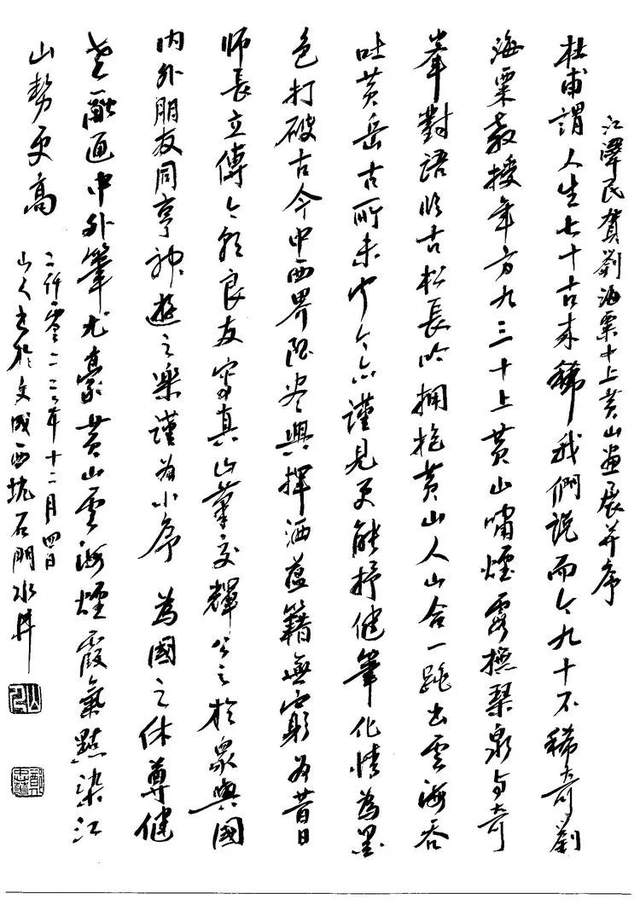 江澤民賀劉海粟十上黃山畫展并序
杜甫謂人生七十古來稀我們說而今九十不稀奇劉
海粟教授年方九三十上黃山嘯煙霞撫琴泉与奇
峯對語临古松長吟擁抱黃山人山合一跳出雲海吞
吐黃岳古所未今亦謹見更能抒健筆化情為墨
色打破古今中西界限尽興揮洒蕴籍無窮为昔日
師長立傳良友寫真山筆交輝公之於眾與國
內外朋友同享神遊之樂謹为小序 為國之休尊健
老融通中外筆尤豪黃山雲海煙霞氣點染江
山勢更高
二仟零年十二月四日
山人书於文成西坑石門水畔